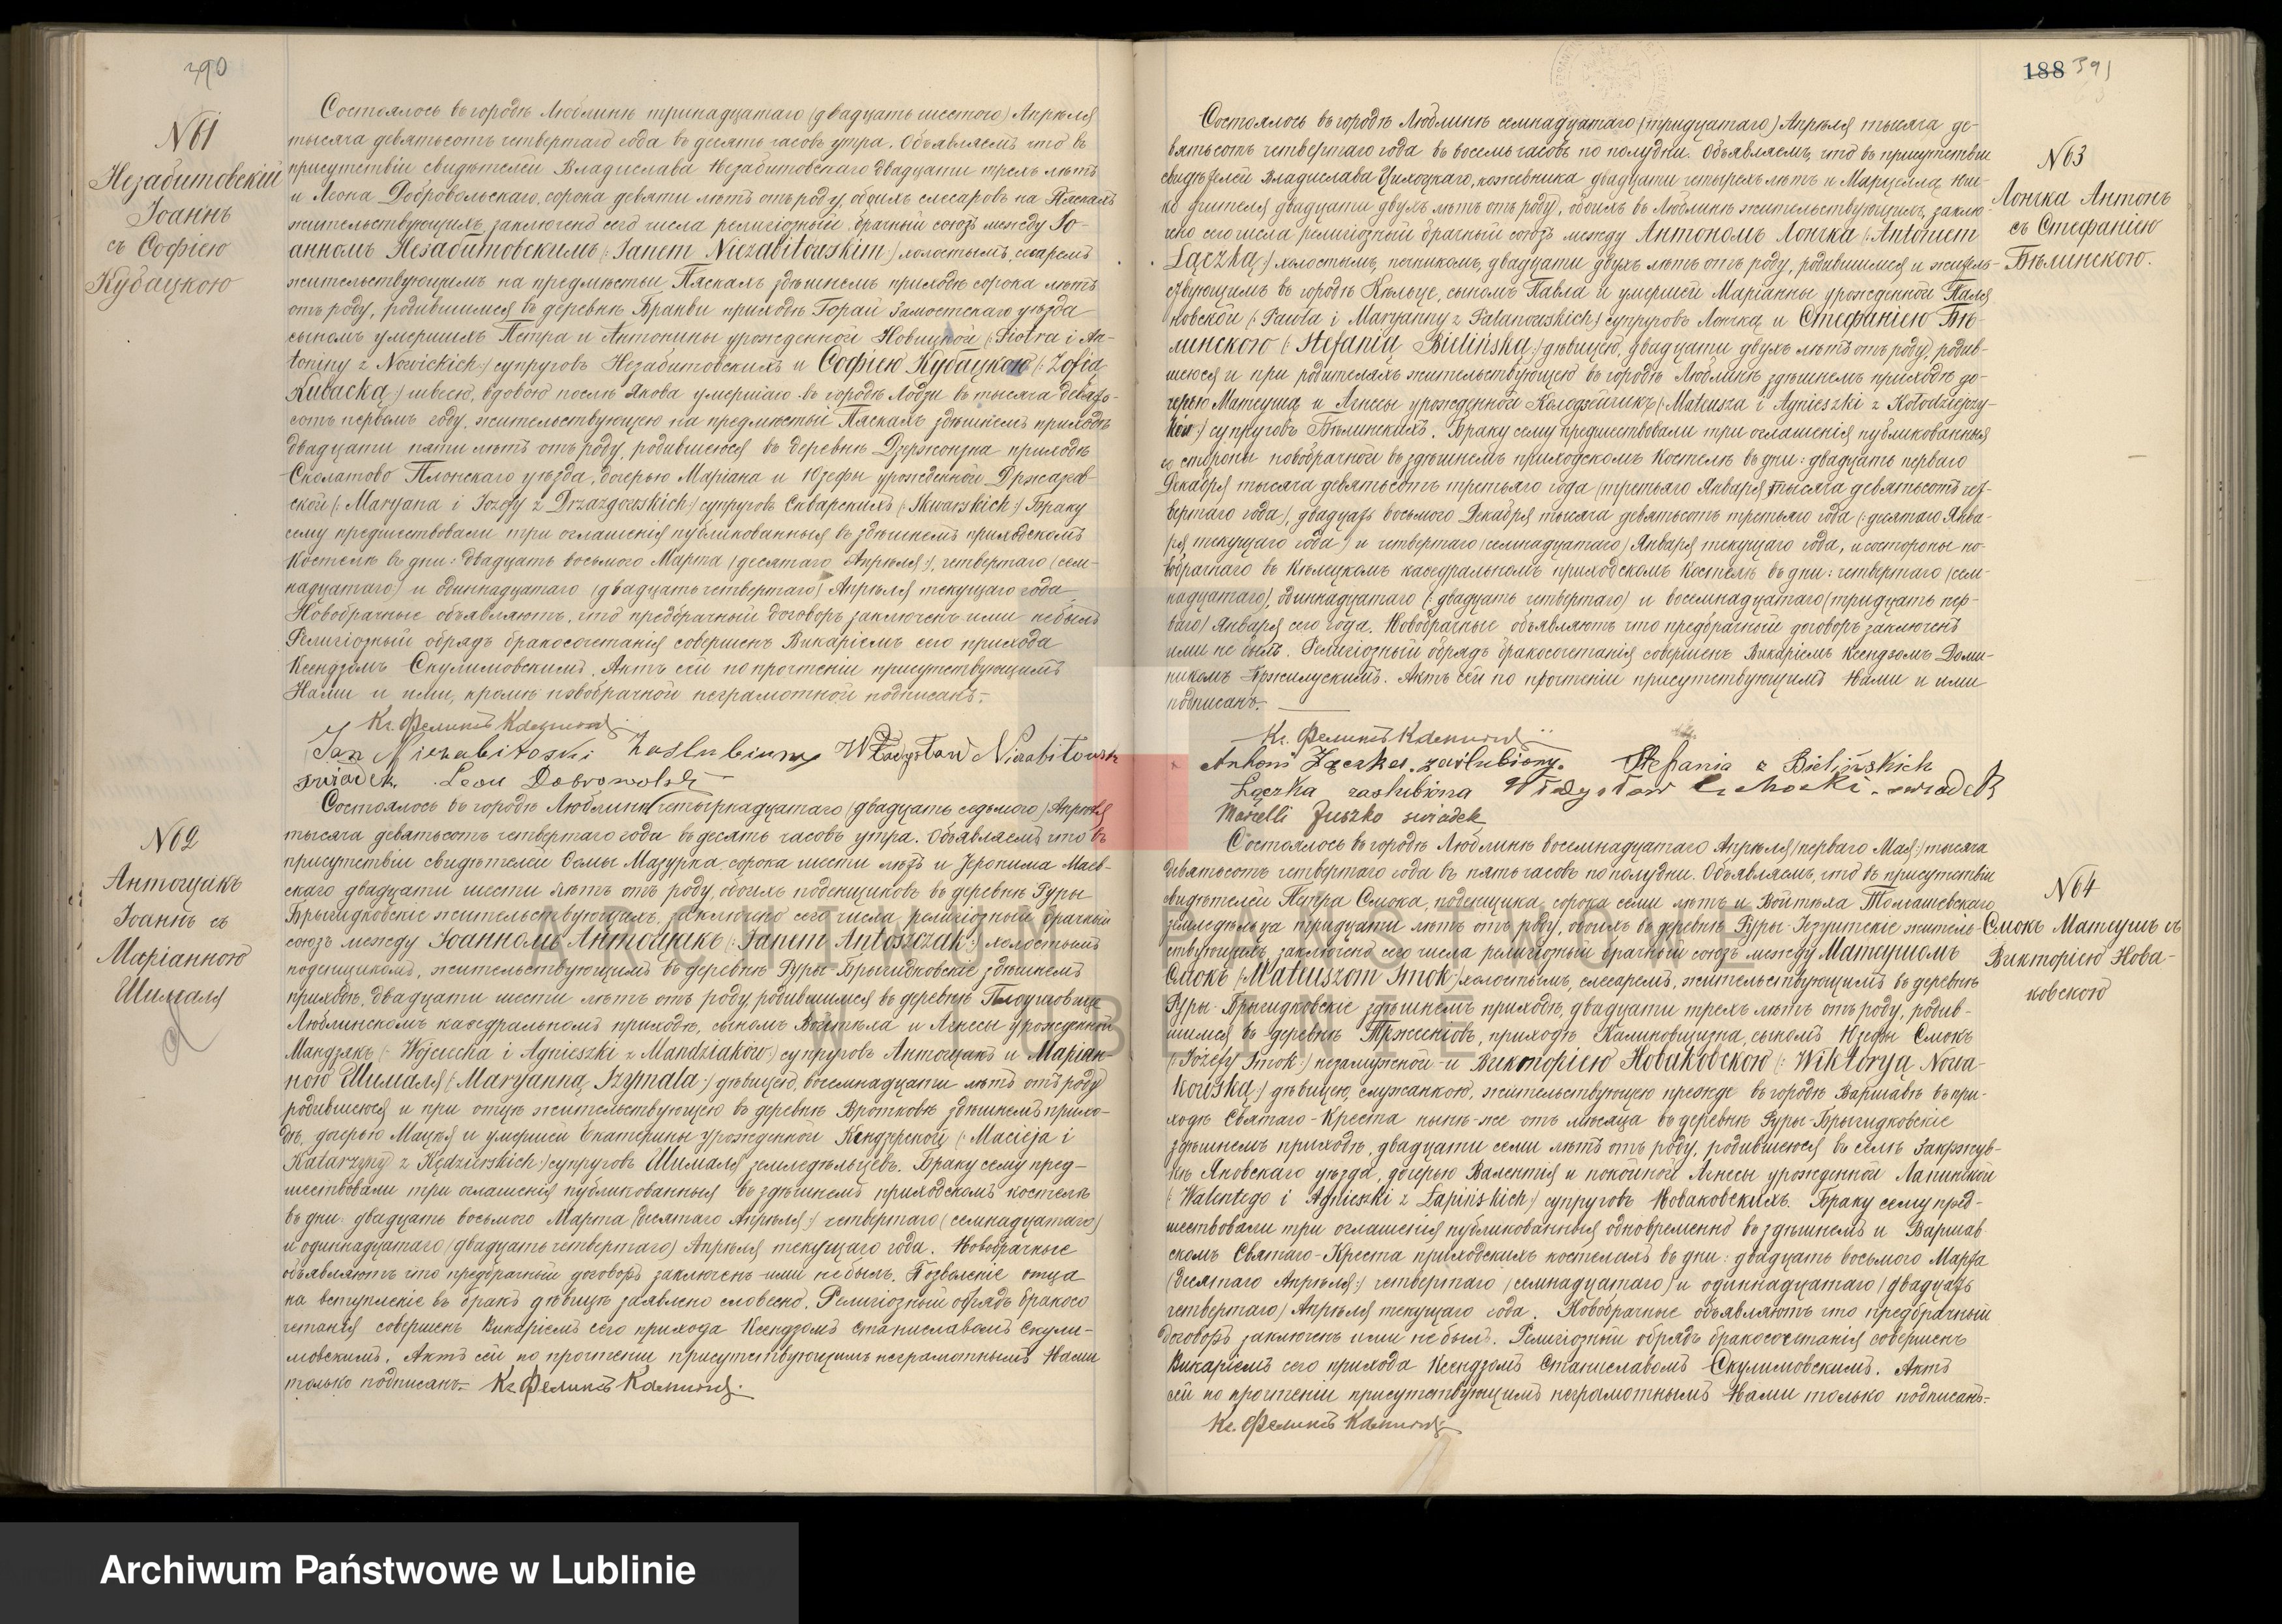 390
№61
Незабитовскій
Іоаннъ
съ Софіею
Кубацкою
Состоялось въ городѣ Люблинѣ тринадцатаго (двадцать шестого) Апрѣля
тысяча девятьсотъ четвертаго года въ десять часовъ утра. Объявляемъ что въ
присутствіи свидѣтелей Владислава Незабитовскаго двадцати трехъ лѣтъ
и Леона Добровольскаго, сорока девяти лѣтъ отъ роду, обоихъ слесаровъ на Пяскахъ
жительствующихъ, заключенъ сего числа религіозный брачный союзъ между Іо-
анномъ Незабитовскимъ (:Janem Niezabitowskim:) холостымъ,
жительствующимъ на предмѣстьи Пяскахъ здѣшнемъ приходѣ сорока лѣтъ
отъ роду, родившимся въ деревнѣ Бранви приходѣ Горай Замостскаго уѣзда
сыномъ умершихъ Петра и Антонины урожденной Новицкой (:Piotra i An-
toniny z Nowickich:) супруговъ Незабитовскихъ и Софіею Кубацкою (:Zofią
Kubacką:) швеею, вдовою послѣ Якова умершаго въ городѣ Лодзи въ тысяча девять-
сотъ первомъ году, жительствующею на предмѣстьи Пяскахъ здѣшнемъ приходѣ
двадцати пяти лѣтъ отъ роду, родившеюся въ деревнѣ приходѣ
Сколатово Плонскаго уѣзда, дочерью Маріана и Юзефы урожденной Држазгов-
ской (:Maryana i Jozefy z Drzazgowskich:) супруговъ Скварскихъ (:Skwarskich:) Браку
сему предшествовали три оглашенія публикованныя въ здѣшнемъ приходскомъ
Костелѣ въ дни: двадцать восьмого Марта (десятаго Апрѣля:), четвертаго (сем-
надцатаго) и одиннадцатаго (двадцать четвертаго) Апрѣля текущаго года.
Новобрачные объявляютъ, что предбрачный договоръ заключенъ ими небылъ
Религіозный обрядъ бракосочетанія совершенъ Викаріемъ сего прихода
Ксендзомъ Скулимовскимъ. Актъ сей по прочтеніи присутствующимъ
Нами и ими, кромѣ новобрачной неграмотной подписанъ.-
Кс. Феликсъ
Jan Niezabitoski Zaslubiony Władysław Niezabitowski
świadek. Leon Dobrowolski
№62
Антощакъ
Іоаннъ съ
Маріанною
Шималя
Состоялось въ городѣ Люблинѣ четырнадцатаго (двадцать седьмого) Апрѣля
тысяча девятьсотъ четвертаго года въ десять часовъ утра. Объявляемъ что въ
присутствіи свидѣтелей Ѳомы Мазурка сорока шести лѣтъ и Іеронима Маев-
скаго двадцати шести лѣтъ отъ роду, обоихъ поденщиковъ въ деревнѣ Руры
Брыгидковскіе жительствующихъ, заключенъ сего числа религіозный брачный
союзъ между Іоанномъ Антощакъ (:Janem Antoszczak:) холостымъ
поденщикомъ, жительствующимъ въ деревнѣ Руры-Брыгидковскіе здѣшнемъ
приходѣ, двадцати шести лѣтъ отъ роду, родившимся въ деревнѣ
Люблинскомъ каѳедральномъ приходѣ, сыномъ Войтѣха и Агнесы урожденной
Мандзякъ (:Wojciecha i Agnieszki z Mandziaków:) супруговъ Антощакъ и Маріан-
ною Шималя (:Maryanną Szymala:) дѣвицею, восемнадцати лѣтъ отъ роду
родившеюся и при отцѣ жительствующею въ деревнѣ Вротковѣ здѣшнемъ прихо-
дѣ, дочерью Мацѣя и умершей Екатерины урожденной Кендзерской (:Macieja i
Katarzyny z Kędzierskich:) супруговъ Шималя земледѣльцевъ. Браку сему пред-
шествовали три оглашенія публикованныя въ здѣшнемъ приходскомъ костелѣ
въ дни: двадцать восьмого Марта (десятаго Апрѣля:) четвертаго (семнадцатаго)
и одиннадцатаго (двадцать четвертаго) Апрѣля текущаго года. Новобрачные
объявляютъ что предбрачный договоръ заключенъ ими небылъ. Позволеніе отца
на вступленіе въ бракъ дѣвицѣ заявлено словесно. Религіозный обрядъ бракосо
четанія совершенъ Викаріемъ сего прихода Ксендзомъ Станиславомъ Скули-
мовскимъ. Актъ сей по прочтеніи присутствующимъ неграмотнымъ Нами
только подписанъ.- Кс. Феликсъ
188 391
№63
Лончка Антонъ
съ Стефаніею
Бѣлинскою.
Состоялось въ городѣ Люблинѣ семнадцатаго (тридцатаго) Апрѣля тысяча де-
вятьсотъ четвертаго года въ восемь часовъ по полудни. Объявляемъ, что въ присутствіи
свидѣтелей Владислава Цихоцкаго, кожевника двадцати четырехъ лѣтъ и Марцелла
учителя двадцати двухъ лѣтъ отъ роду, обоихъ въ Люблинѣ жительствующихъ, заклю-
чено сего числа религіозный брачный союзъ между Антономъ Лончка (:Antonim
Łączką:) холостымъ, двадцати двухъ лѣтъ отъ роду, родившимся и житель-
ствующимъ въ городѣ Кѣльце, сыномъ Павла и умершей Маріанны урожденной Пала
новской (:Pawła i Maryanny z Palanowskich:) супруговъ Лончка, и Стефаніею Бѣ-
линскою (:Stefanią Bielińską:) дѣвицею, двадцати двухъ лѣтъ отъ роду, родив-
шеюся и при родителяхъ жительствующею въ городѣ Люблинѣ здѣшнемъ приходѣ до-
черью Матеуша и Агнесы урожденной Колодзѣйчикъ (:Mateusza i Agnieszki z Kołodziejczy-
ków:) супруговъ Бѣлинскихъ. Браку сему предшествовали три оглашенія публикованныя
со стороны новобрачной въ здѣшнемъ приходскомъ Костелѣ въ дни: двадцать перваго
Декабря тысяча девятьсотъ третьяго года (третьяго Января тысяча девятьсотъ чет-
вертаго года), двадцать восьмого Декабря тысяча девятьсотъ третьяго года (:десятаго Янва-
ря текущаго года) и четвертаго (семнадцатаго) Января текущаго года, и состороны но-
вобрачнаго въ Кѣлецкомъ каѳедральномъ приходскомъ Костелѣ въ дни: четвертаго (сем-
надцатаго), одиннадцатаго (:двадцать четвертаго) и восемнадцатаго (тридцать пер-
ваго) Января сего года. Новобрачные объявляютъ что предбрачный договоръ заключенъ
ими не былъ. Религіозный обрядъ бракосочетанія совершенъ Викаріемъ Ксендзомъ Доми-
никомъ Актъ сей по прочтеніи присутствующимъ Нами и ими
подписанъ.-
Кс. Феликсъ
Antoni Łączka. zaślubiony. Stefania z Bielińskich
Łączka zaslubiona Władysław Cichocki. swiadek
Marcelli Juszko swiadek
№64
Смокъ Матеушъ съ
Викторіею Нова-
ковскою
Состоялось въ городѣ Люблинѣ восемнадцатаго Апрѣля (перваго Мая:) тысяча
девятьсотъ четвертаго года въ пять часовъ пополудни. Объявляемъ, что въ присутствіи
свидѣтелей Петра Смока, поденщика, сорока семи лѣтъ и Войтѣха Томашевскаго
земледѣльца тридцати лѣтъ отъ роду, обоихъ въ деревнѣ Руры-Іезуитскіе житель-
ствующихъ, заключенъ сего числа религіозный брачный союзъ между Матеушомъ
Смокъ (:Mateuszom Smok:) холостымъ, слесаремъ, жительствующимъ въ деревнѣ
Руры-Брыгидковскіе здѣшнемъ приходѣ, двадцати трехъ лѣтъ отъ роду, родив-
шимся въ деревнѣ приходѣ сыномъ Юзефы Смокъ
(:Józefy Smok:) незамужной и Викторіею Новаковскою (:Wiktoryą Nowa-
kowską:) дѣвицею, служанкою, жительствующею прежде въ городѣ Варшавѣ въ при-
ходѣ Святаго-Креста нынѣ-же отъ мѣсяца въ деревнѣ Руры-Брыгидковскіе
здѣшнемъ приходѣ, двадцати семи лѣтъ отъ роду, родившеюся въ селѣ Закржув-
кѣ Яновскаго уѣзда, дочерью Валентія и покойной Агнесы урожденной Лапинской
(:Walentego i Agnieszki z Łapińskich:) супруговъ Новаковскихъ. Браку сему пред-
шествовали три оглашенія публикованныя одновременно въ здѣшнемъ и Варшав
скомъ Святаго-Креста приходскихъ костелахъ въ дни: двадцать восьмого Марта
(десятаго Апрѣля:) четвертаго (семнадцатаго) и одиннадцатаго (двадцать
четвертаго) Апрѣля текущаго года. Новобрачные объявляютъ что предбрачный
договоръ заключенъ ими не былъ. Религіозный обрядъ бракосочетанія совершенъ
Викаріемъ сего прихода Ксендзомъ Станиславомъ Скулимовскимъ. Актъ
сей по прочтеніи присутствующимъ неграмотнымъ Нами только подписанъ.-
Кс. Феликсъ
ARCHIWUM PAŃSTWOWE
W LUBLINIE
Archiwum Państwowe w Lublinie